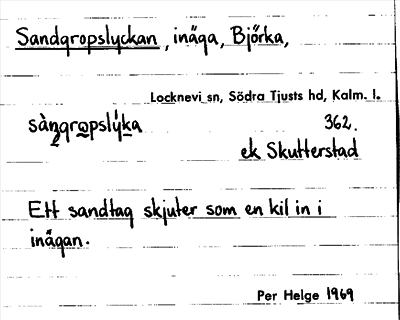 Sandgropslyckan, inäga, Björka,
Locknevi sn, Södra Tjusts hd, Kalm. l.
sàngropslýka 362.
ek Skutterstad
Ett sandtag skjuter som en kil in i
inägan.
Per Helge 1969